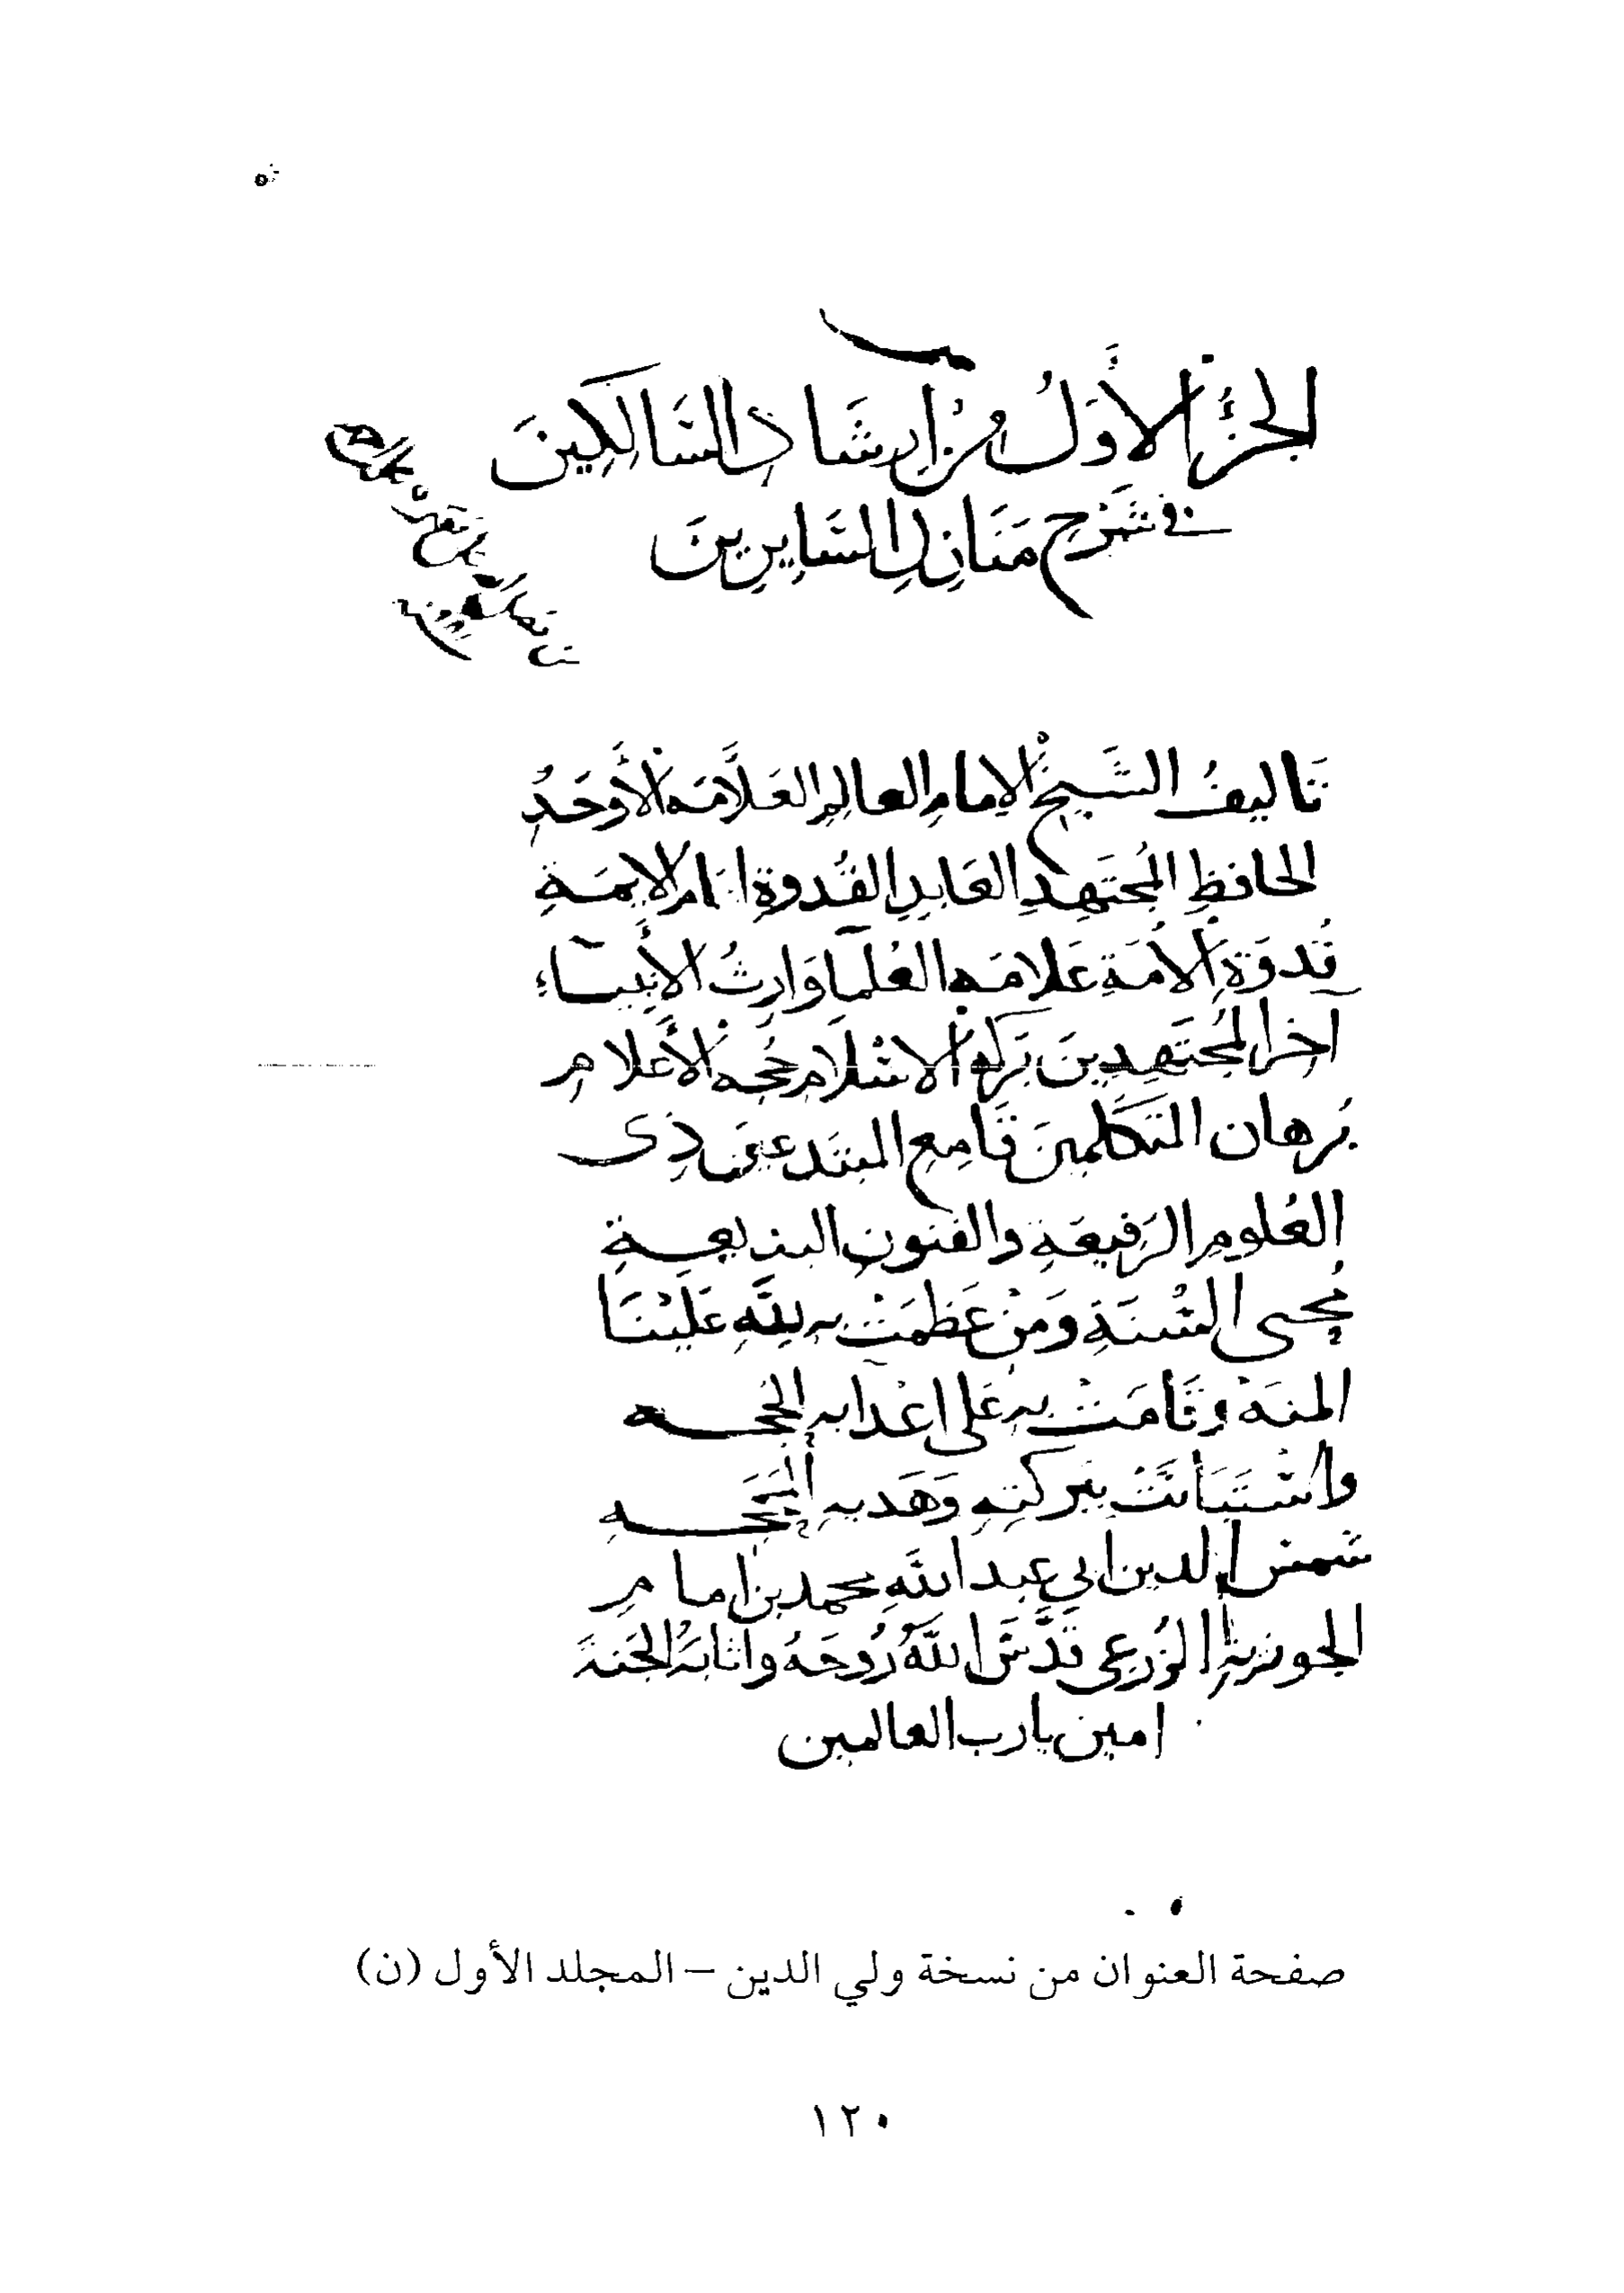 الجزُء الأوَلُ مِنْ ارشَادِ السَّالِكِينَ
في شَرْحِ مَنَازِلِ السَّايِرِينَ
تَاليفُ الشَّيخْ الإمامِ العالِمِ العَلَّامَه الأَوحَدُ
الحافظِ المُجتَهِدِ العَابِدِ القُدوةِ امام الايمَةِ
قُدوَةِ الأمَةِ عَلامَهِ العُلمَا وَارِثُ الأَنبيَاءِ
آخر المُجتَهِدِينَ بَركه الاسْلَامِ حُجه الأَعلامِ
بَرهان المتَكلمِينَ قَامِع المبتَدعِينَ ذِى
العُلومِ الرَفيعَةِ والفنونِ البَديعَةِ
مُحيى السُنَةِ وَمَنْ عَظمَتْ به للَّهِ عَليْنَا
المنَة وقَامَتْ بِهِ عَلى اعْدَايه الحُجه
واسْتَبَانَتْ بِبَركتِهِ وَهَديهِ المَحَجه
شمس الدين ابي عبد اللَّهِ محمد بن امامِ
الجوزيةِ الزُرعِى قَدَّسَ اللَّهُ رُوحَهُ واثابَهُ الجَنةَ
امين يارب العالمين
صفحة العنوان من نسخة ولي الدين – المجلد الأول (ن)
١٢٠